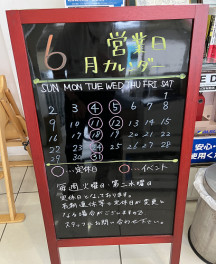 6
月
営業日
カレンダー
SUN MON TUE WED THU FRI SAT
1
2 3 4 5 6 7 8
9 10 11 12 13 14 15
16 17 18 19 20 21 22
23 24 25 26 27 28
29 30 31
○…定休日 ○…イベント
毎週火曜日・第二水曜日
定休日となっております。
長期連休等で定休日が変更と
なる場合がございますので
スタッフにお問い合わせ下さい。
安心
使い